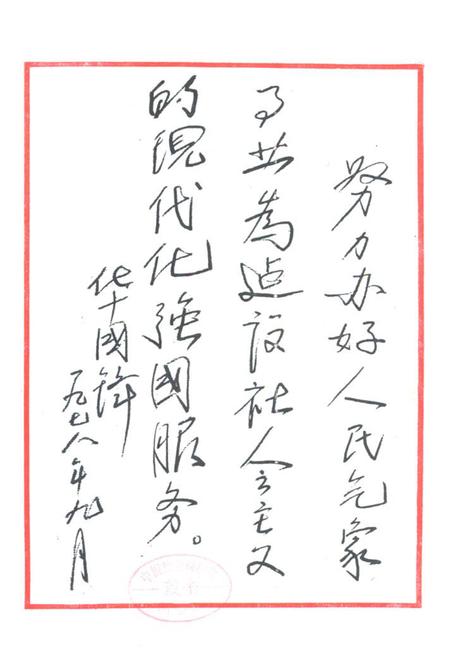 努力办好人民气象
事业为建设社会主义
的现代化强國服务。
华國锋
一九七八年九月